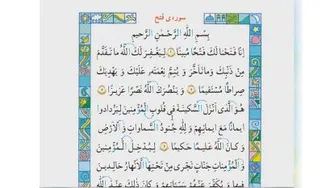 سوره‌ی فتح
بِسْمِ اللَّهِ الرَّحْمَنِ الرَّحِيمِ
إِنَّا فَتَحْنَا لَكَ فَتْحًا مُبِينًا ۱ لِيَغْفِرَ لَكَ اللَّهُ مَا تَقَدَّمَ
مِنْ ذَنْبِكَ وَمَا تَأَخَّرَ وَ يُتِمَّ نِعْمَتَهُ عَلَيْكَ وَ يَهْدِيَكَ
صِرَاطًا مُسْتَقِيمًا ۲ وَ يَنْصُرَكَ اللَّهُ نَصْرًا عَزِيزًا ۳
هُوَ الَّذِي أَنْزَلَ السَّكِينَةَ فِي قُلُوبِ الْمُؤْمِنِينَ لِيَزْدَادُوا
إِيمَانًا مَعَ إِيمَانِهِمْ وَ لِلَّهِ جُنُودُ السَّمَاوَاتِ وَ الْأَرْضِ
وَ كَانَ اللَّهُ عَلِيمًا حَكِيمًا ۴ لِيُدْخِلَ الْمُؤْمِنِينَ
وَ الْمُؤْمِنَاتِ جَنَّاتٍ تَجْرِي مِنْ تَحْتِهَا الْأَنْهَارُ خَالِدِينَ
فِيهَا وَ يُكَفِّرَ عَنْهُمْ سَيِّئَاتِهِمْ وَ كَانَ ذَلِكَ عِنْدَ اللَّهِ